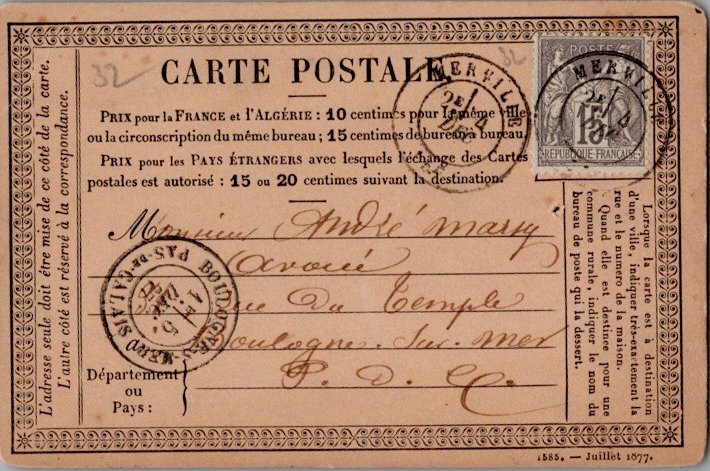 32
32
CARTE POSTALE
PRIX pour la FRANCE et l'ALGÉRIE : 10 centimes pour la même ville
ou la circonscription du même bureau ; 15 centimes de bureau à bureau.
PRIX pour les PAYS ÉTRANGERS avec lesquels l'échange des Cartes
postales est autorisé : 15 ou 20 centimes suivant la destination.
MERVILLE
2E
DÉC
POSTE
15
REPUBLIQUE FRANÇAISE
MERVILLE
2E
4
Monsieur André Marsy
avoué
rue du Temple
Boulogne-sur-mer
P. D. C.
BOULOGNE-S-MER
PAS-DE-CALAIS
1E
5
DÉC
Département
ou
Pays :
L'adresse seule doit être mise de ce côté de la carte.
L'autre côté est réservé à la correspondance.
Lorsque la carte est à destination
d'une ville, indiquer très-exactement la
rue et le numero de la maison.
Quand elle est destinée pour une
commune rurale, indiquer le nom du
bureau de poste qui la dessert.
1585. — Juillet 1877.